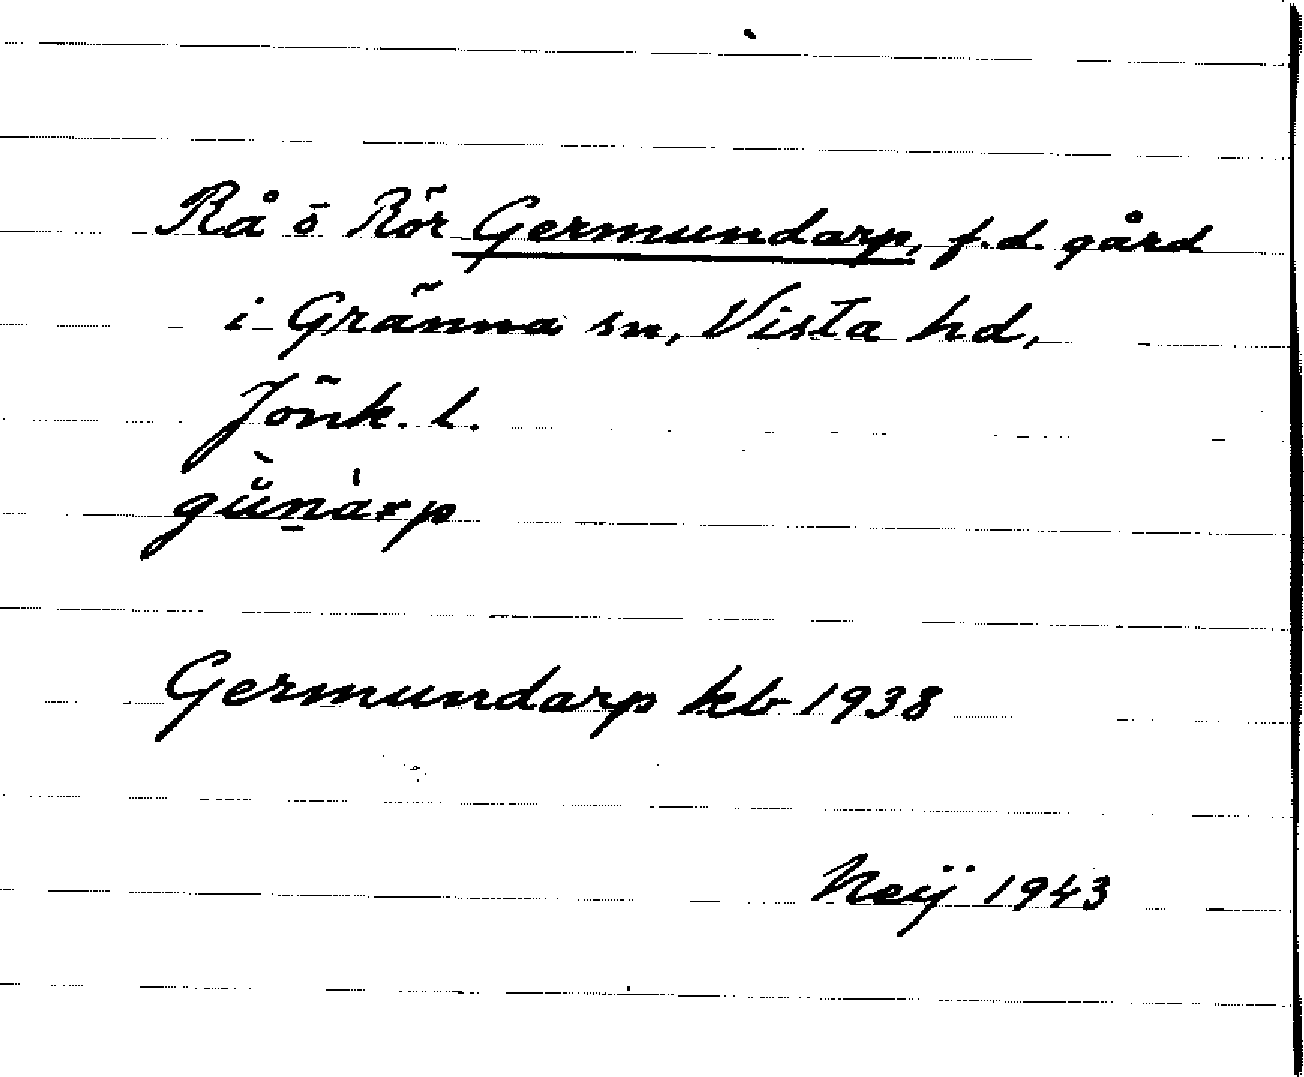 Rå ö Rör Germundarp, f.d. gård
i Gränna sn, Vista hd,
Jönk. l.
Germundarp kb 1938
Neij 1943